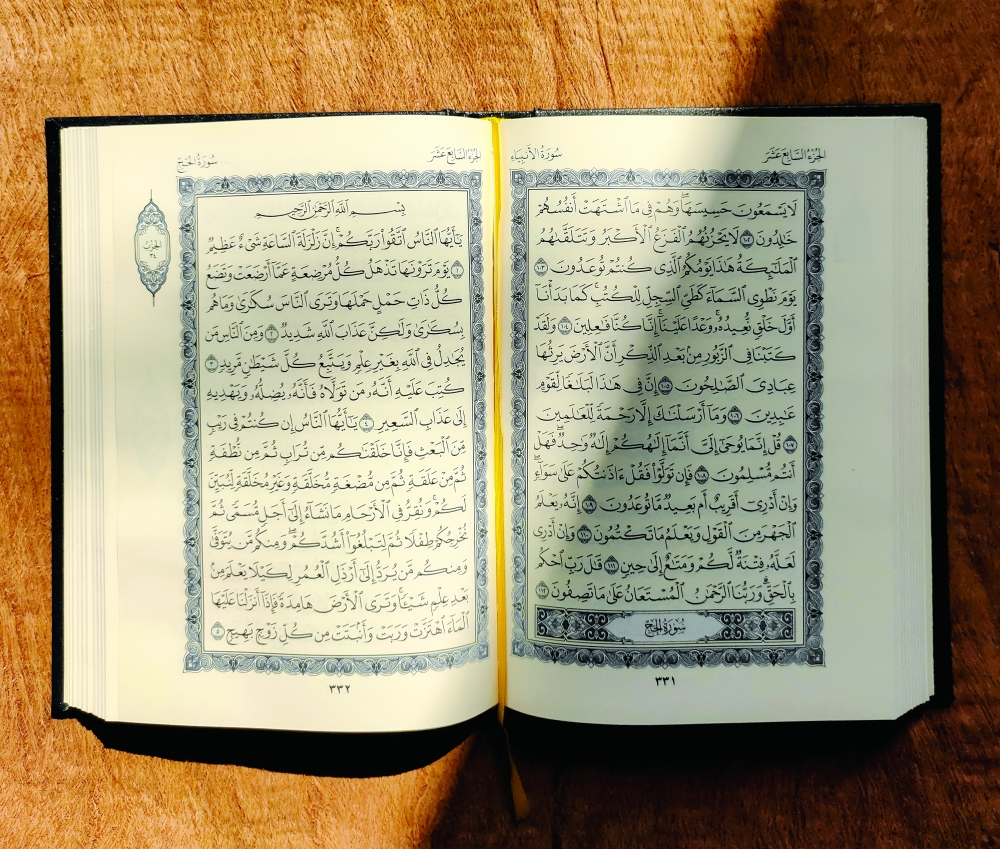 الجزء السابع عشر
سورة الأنبياء
لَا يَسْمَعُونَ حَسِيسَهَا ۖ وَهُمْ فِى مَا ٱشْتَهَتْ أَنفُسُهُمْ
خَٰلِدُونَ ١٠٢ لَا يَحْزُنُهُمُ ٱلْفَزَعُ ٱلْأَكْبَرُ وَتَتَلَقَّىٰهُمُ
ٱلْمَلَٰٓئِكَةُ هَٰذَا يَوْمُكُمُ ٱلَّذِى كُنتُمْ تُوعَدُونَ ١٠٣
يَوْمَ نَطْوِى ٱلسَّمَآءَ كَطَىِّ ٱلسِّجِلِّ لِلْكُتُبِ ۚ كَمَا بَدَأْنَآ
أَوَّلَ خَلْقٍ نُّعِيدُهُۥ ۚ وَعْدًا عَلَيْنَآ ۚ إِنَّا كُنَّا فَٰعِلِينَ ١٠٤ وَلَقَدْ
كَتَبْنَا فِى ٱلزَّبُورِ مِنۢ بَعْدِ ٱلذِّكْرِ أَنَّ ٱلْأَرْضَ يَرِثُهَا
عِبَادِىَ ٱلصَّٰلِحُونَ ١٠٥ إِنَّ فِى هَٰذَا لَبَلَٰغًا لِّقَوْمٍ
عَٰبِدِينَ ١٠٦ وَمَآ أَرْسَلْنَٰكَ إِلَّا رَحْمَةً لِّلْعَٰلَمِينَ
١٠٧ قُلْ إِنَّمَا يُوحَىٰٓ إِلَىَّ أَنَّمَآ إِلَٰهُكُمْ إِلَٰهٌ وَٰحِدٌ ۖ فَهَلْ
أَنتُم مُّسْلِمُونَ ١٠٨ فَإِن تَوَلَّوْا۟ فَقُلْ ءَاذَنتُكُمْ عَلَىٰ سَوَآءٍ ۖ
وَإِنْ أَدْرِىٓ أَقَرِيبٌ أَم بَعِيدٌ مَّا تُوعَدُونَ ١٠٩ إِنَّهُۥ يَعْلَمُ
ٱلْجَهْرَ مِنَ ٱلْقَوْلِ وَيَعْلَمُ مَا تَكْتُمُونَ ١١٠ وَإِنْ أَدْرِى
لَعَلَّهُۥ فِتْنَةٌ لَّكُمْ وَمَتَٰعٌ إِلَىٰ حِينٍ ١١١ قَٰلَ رَبِّ ٱحْكُم
بِٱلْحَقِّ ۗ وَرَبُّنَا ٱلرَّحْمَٰنُ ٱلْمُسْتَعَانُ عَلَىٰ مَا تَصِفُونَ ١١٢
سُورَةُ الحَجّ
٣٣١
الجزء السابع عشر
سورة الحج
الحزب
٣٤
بِسْمِ ٱللَّهِ ٱلرَّحْمَٰنِ ٱلرَّحِيمِ
يَٰٓأَيُّهَا ٱلنَّاسُ ٱتَّقُوا۟ رَبَّكُمْ ۚ إِنَّ زَلْزَلَةَ ٱلسَّاعَةِ شَىْءٌ عَظِيمٌ
١ يَوْمَ تَرَوْنَهَا تَذْهَلُ كُلُّ مُرْضِعَةٍ عَمَّآ أَرْضَعَتْ وَتَضَعُ
كُلُّ ذَاتِ حَمْلٍ حَمْلَهَا وَتَرَى ٱلنَّاسَ سُكَٰرَىٰ وَمَا هُم
بِسُكَٰرَىٰ وَلَٰكِنَّ عَذَابَ ٱللَّهِ شَدِيدٌ ٢ وَمِنَ ٱلنَّاسِ مَن
يُجَٰدِلُ فِى ٱللَّهِ بِغَيْرِ عِلْمٍ وَيَتَّبِعُ كُلَّ شَيْطَٰنٍ مَّرِيدٍ ٣
كُتِبَ عَلَيْهِ أَنَّهُۥ مَن تَوَلَّاهُ فَأَنَّهُۥ يُضِلُّهُۥ وَيَهْدِيهِ
إِلَىٰ عَذَابِ ٱلسَّعِيرِ ٤ يَٰٓأَيُّهَا ٱلنَّاسُ إِن كُنتُمْ فِى رَيْبٍ
مِّنَ ٱلْبَعْثِ فَإِنَّا خَلَقْنَٰكُم مِّن تُرَابٍ ثُمَّ مِن نُّطْفَةٍ
ثُمَّ مِنْ عَلَقَةٍ ثُمَّ مِن مُّضْغَةٍ مُّخَلَّقَةٍ وَغَيْرِ مُخَلَّقَةٍ لِّنُبَيِّنَ
لَكُمْ ۚ وَنُقِرُّ فِى ٱلْأَرْحَامِ مَا نَشَآءُ إِلَىٰٓ أَجَلٍ مُّسَمًّى ثُمَّ
نُخْرِجُكُمْ طِفْلًا ثُمَّ لِتَبْلُغُوٓا۟ أَشُدَّكُمْ ۖ وَمِنكُم مَّن يُتَوَفَّىٰ
وَمِنكُم مَّن يُرَدُّ إِلَىٰٓ أَرْذَلِ ٱلْعُمُرِ لِكَيْلَا يَعْلَمَ مِنۢ
بَعْدِ عِلْمٍ شَيْـًٔا ۚ وَتَرَى ٱلْأَرْضَ هَامِدَةً فَإِذَآ أَنزَلْنَا عَلَيْهَا
ٱلْمَآءَ ٱهْتَزَّتْ وَرَبَتْ وَأَنۢبَتَتْ مِن كُلِّ زَوْجٍۭ بَهِيجٍ ٥
٣٣٢